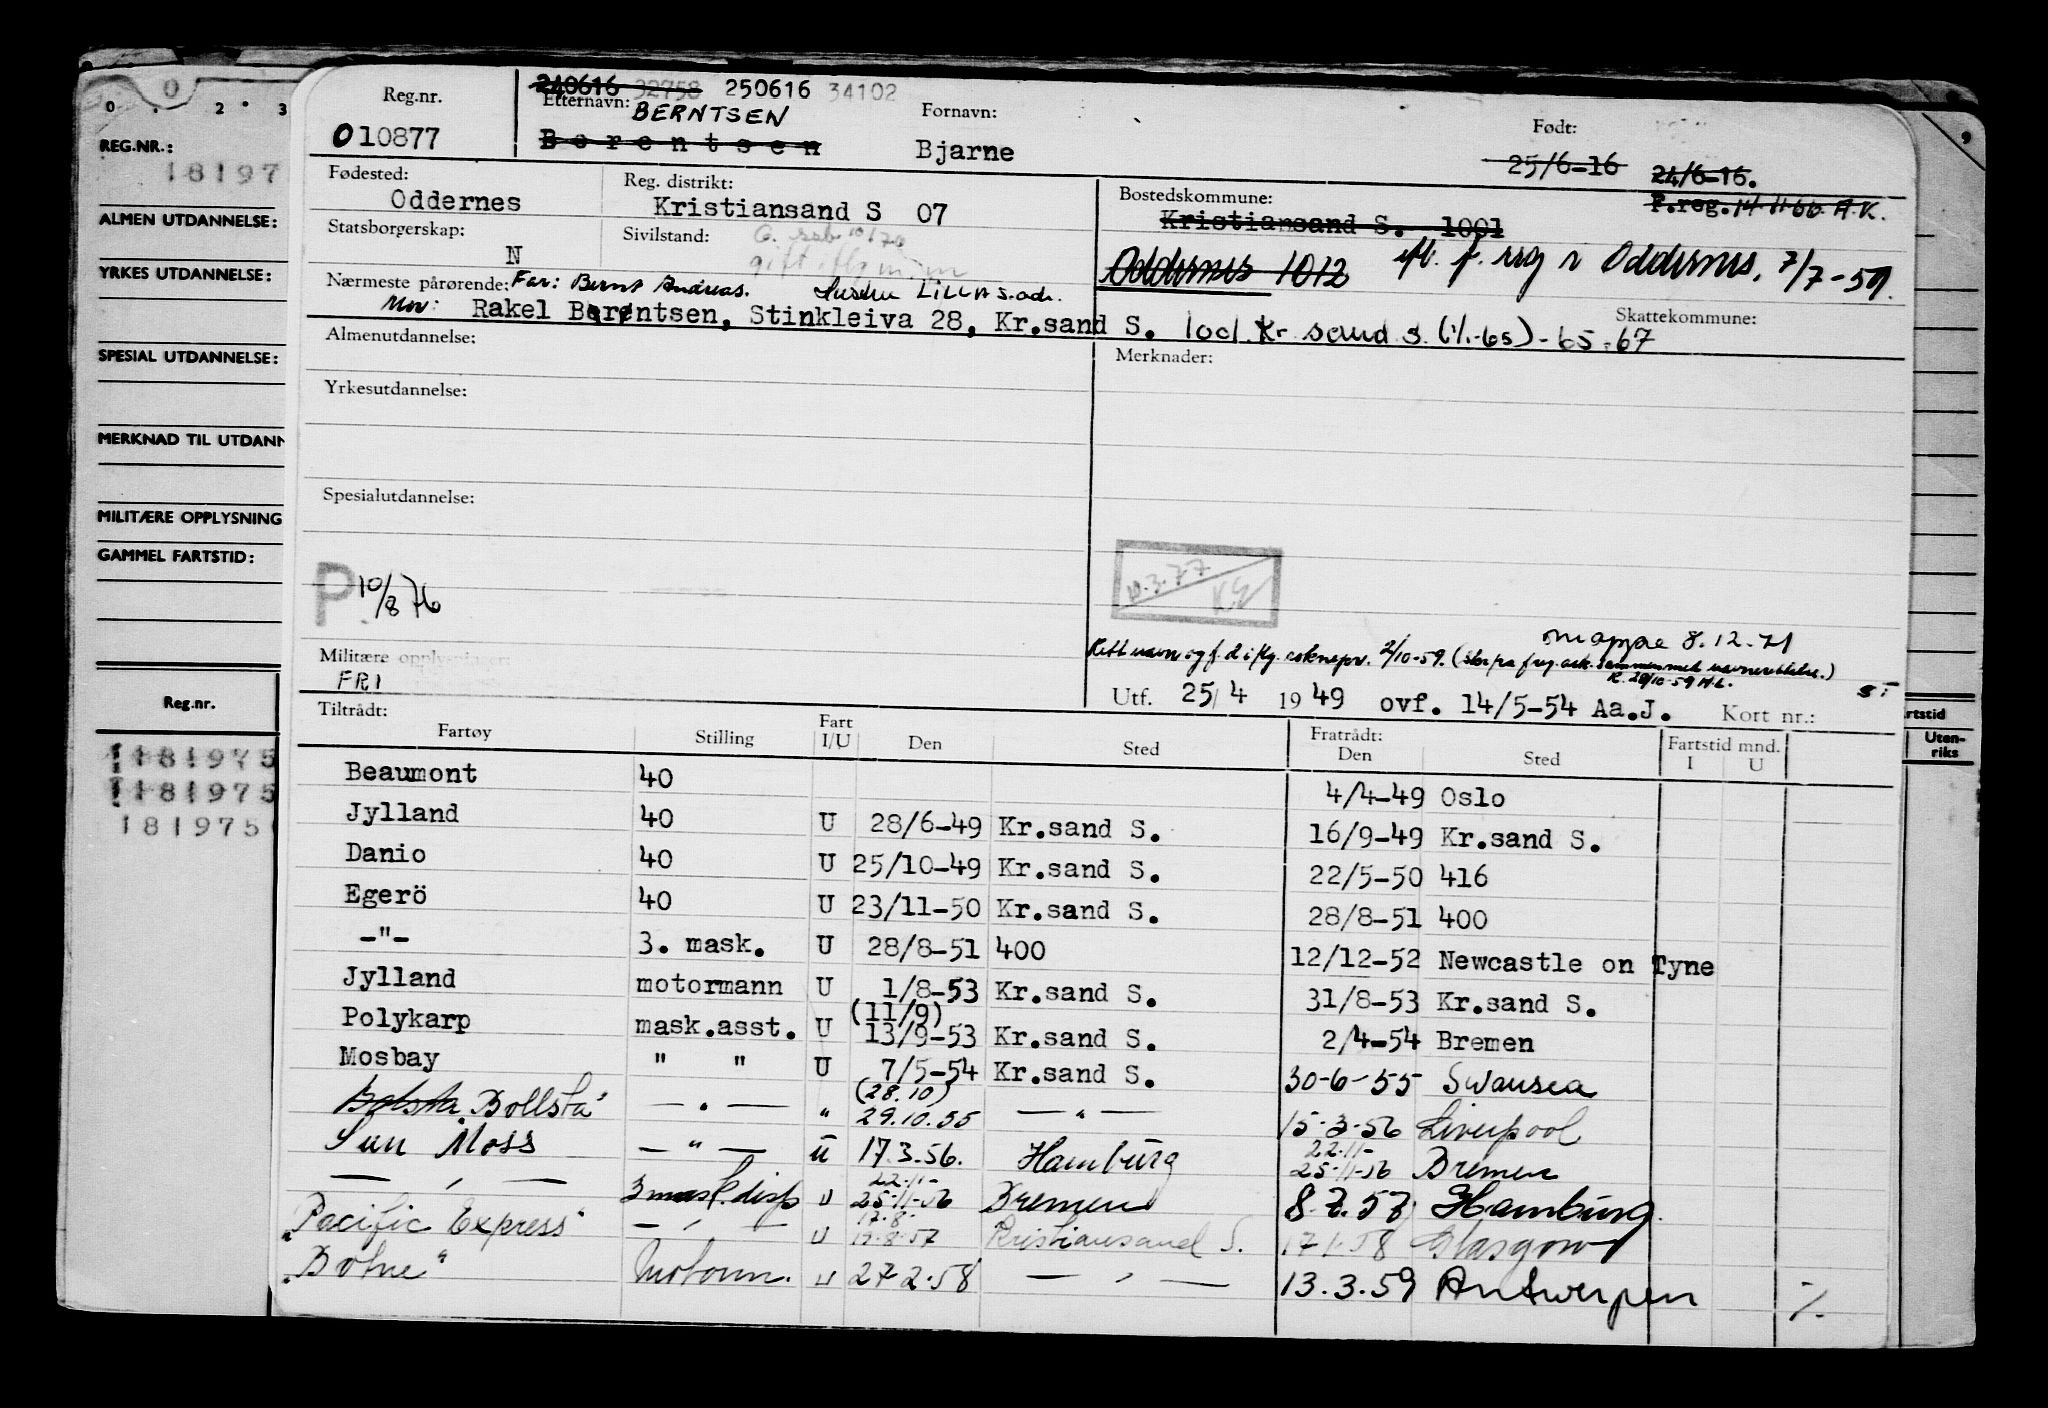 240616 32758 250616 34102
Reg.nr. Etternavn: BERNTSEN Fornavn: Født:
010877 Berentsen Bjarne 25/6-16 24/6-16.
P.reg. 14.11.66. A.K.
Fødested: Oddernes Reg. distrikt: Kristiansand S 07 Bostedskommune: Kristiansand S. 1001
Statsborgerskap: N Sivilstand: Oddernes 1012 Oddernes, 7/7-59.
gift iflg
Nærmeste pårørende: Far: Bernt Andreas. LILLA s. adr.
Mor: Rakel Berentsen, Stinkleiva 28, Kr.sand S. 1001 Kr. sand s. (1/1-65)-65-67 Skattekommune:
Almenutdannelse: Merknader:
Yrkesutdannelse:
Spesialutdannelse:
P 10/8 76
10.3.77
mappe 8.12.71
Rett navn og f.d. iflg. 2/10-59.
Militære opplysninger: R. 20/10-59 H.L.
FRI
Utf. 25/4 1949 ovf. 14/5-54 Aa.J. Kort nr.:
Tiltrådt: Fratrådt: Fartstid mnd.
Fartøy Stilling Fart I/U Den Sted Den Sted I U
Beaumont 40 4/4-49 Oslo
Jylland 40 U 28/6-49 Kr.sand S. 16/9-49 Kr.sand S.
Danio 40 U 25/10-49 Kr.sand S. 22/5-50 416
Egerö 40 U 23/11-50 Kr.sand S. 28/8-51 400
-"- 3. mask. U 28/8-51 400 12/12-52 Newcastle on Tyne
Jylland motormann U 1/8-53 Kr.sand S. 31/8-53 Kr.sand S.
(11/9)
Polykarp mask.asst. U 13/9-53 Kr.sand S. 2/4-54 Bremen
Mosbay " " U 7/5-54 Kr.sand S. 30-6-55 Swansea
(28.10)
Bollsta" — " — " 29.10.55 — " — 15-3-56 Liverpool
Sun Moss — " — u 17.3.56. Hamburg 22.11- 25-11-56 Bremen
— " — 3 mask. disp u 22.11- 25-11-56 Bremen 8.7.57 Hamburg
17.8.
"Pacific Express" — " — u 19.8.57 Kristiansand S. 17.1.58 Glasgow
"Botne" Motorm. u 27.2.58 — " — 13.3.59 Antwerpen %
0 . 2 3
REG.NR.:
18197
ALMEN UTDANNELSE:
YRKES UTDANNELSE:
SPESIAL UTDANNELSE:
MERKNAD TIL UTDANN
MILITÆRE OPPLYSNING
GAMMEL FARTSTID:
Reg.nr.
181975
181975
181975
9
rtstid
Uten-
riks